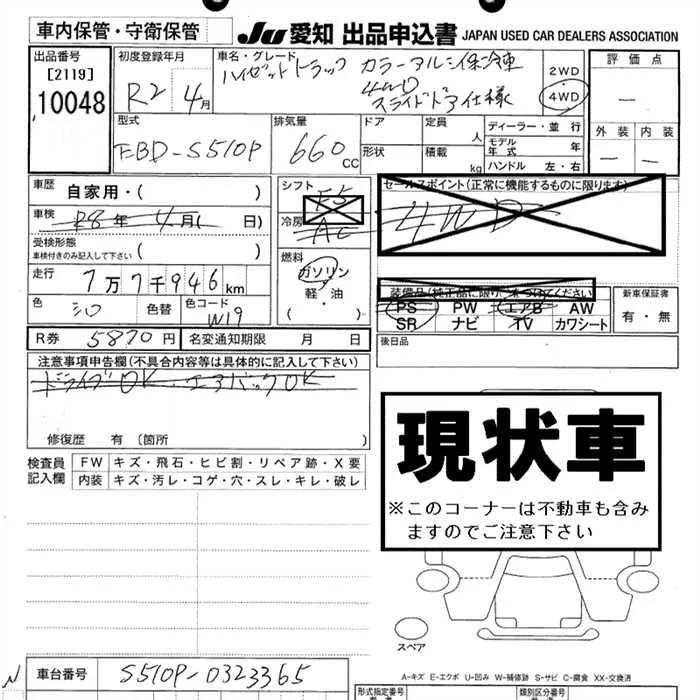 車内保管・守衛保管
JU 愛知 出品申込書 JAPAN USED CAR DEALERS ASSOCIATION
出品番号
[2119]
10048
初度登録年月
R2 4月
車名・グレード
ハイゼットトラック カラーアルミ保冷凍
4WD
スライドドア仕様
2WD
4WD
評価点
—
外装 内装
— —
型式
EBD-S510P
排気量
660cc
ドア
形状
定員 人
積載 kg
ディーラー・並行
モデル年式 年
ハンドル 左・右
車歴 自家用・( )
車検 R8年 4月( 日)
受検形態
車検付きのみ記入して下さい ( )
走行 7万7千946km
色 シロ 色替 色コード W19
シフト F5
冷房 AC
燃料
ガソリン
軽・油
( ・ )
セールスポイント(正常に機能するものに限ります)
4WD
装備品(純正品に限り をつけてください
PS PW エアB AW
SR ナビ TV カワシート
新車保証書
有・無
R券 5870円 名変通知期限 月 日
後日品
注意事項申告欄(不具合内容等は具体的に記入して下さい)
ドライブOK エアバックOK
修復歴 有(箇所 )
検査員
記入欄
FW キズ・飛石・ヒビ割・リペア跡・X要
内装 キズ・汚レ・コゲ・穴・スレ・キレ・破レ
現状車
※このコーナーは不動車も含み
ますのでご注意下さい
スペア
A-キズ E-エクボ U-凹み W-補修跡 S-サビ C-腐食 XX-交換済
車台番号 S510P-0323365
形式指定番号
類別区分番号